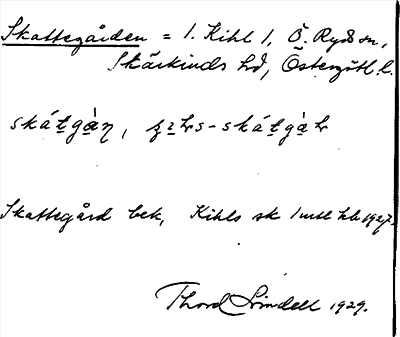 Skattegården = 1. Kihl 1, Ö. Ryds sn,
Skärkinds hd, Östergötl. l.
skátgàn,
Skattegård bek, Kihls sk 1927.
Thord Lindell 1929.